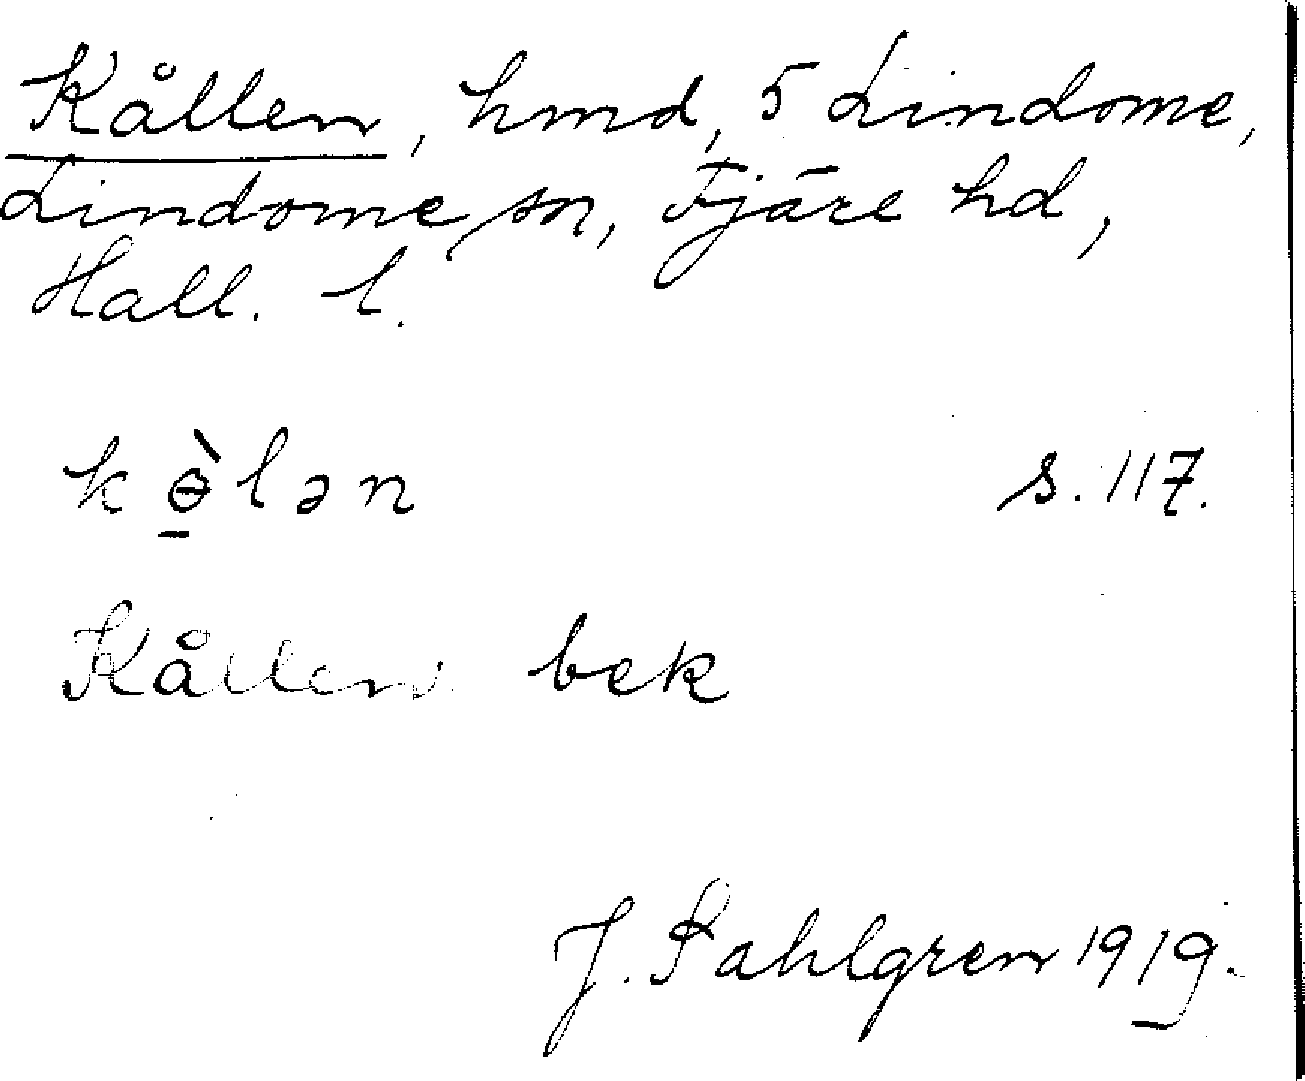 Kållen, hmd, 5 Lindome,
Lindome sn, Fjäre hd,
Hall. l.
kɵ̱̀lən s. 117.
Kållen bek
J. Sahlgren 1919.